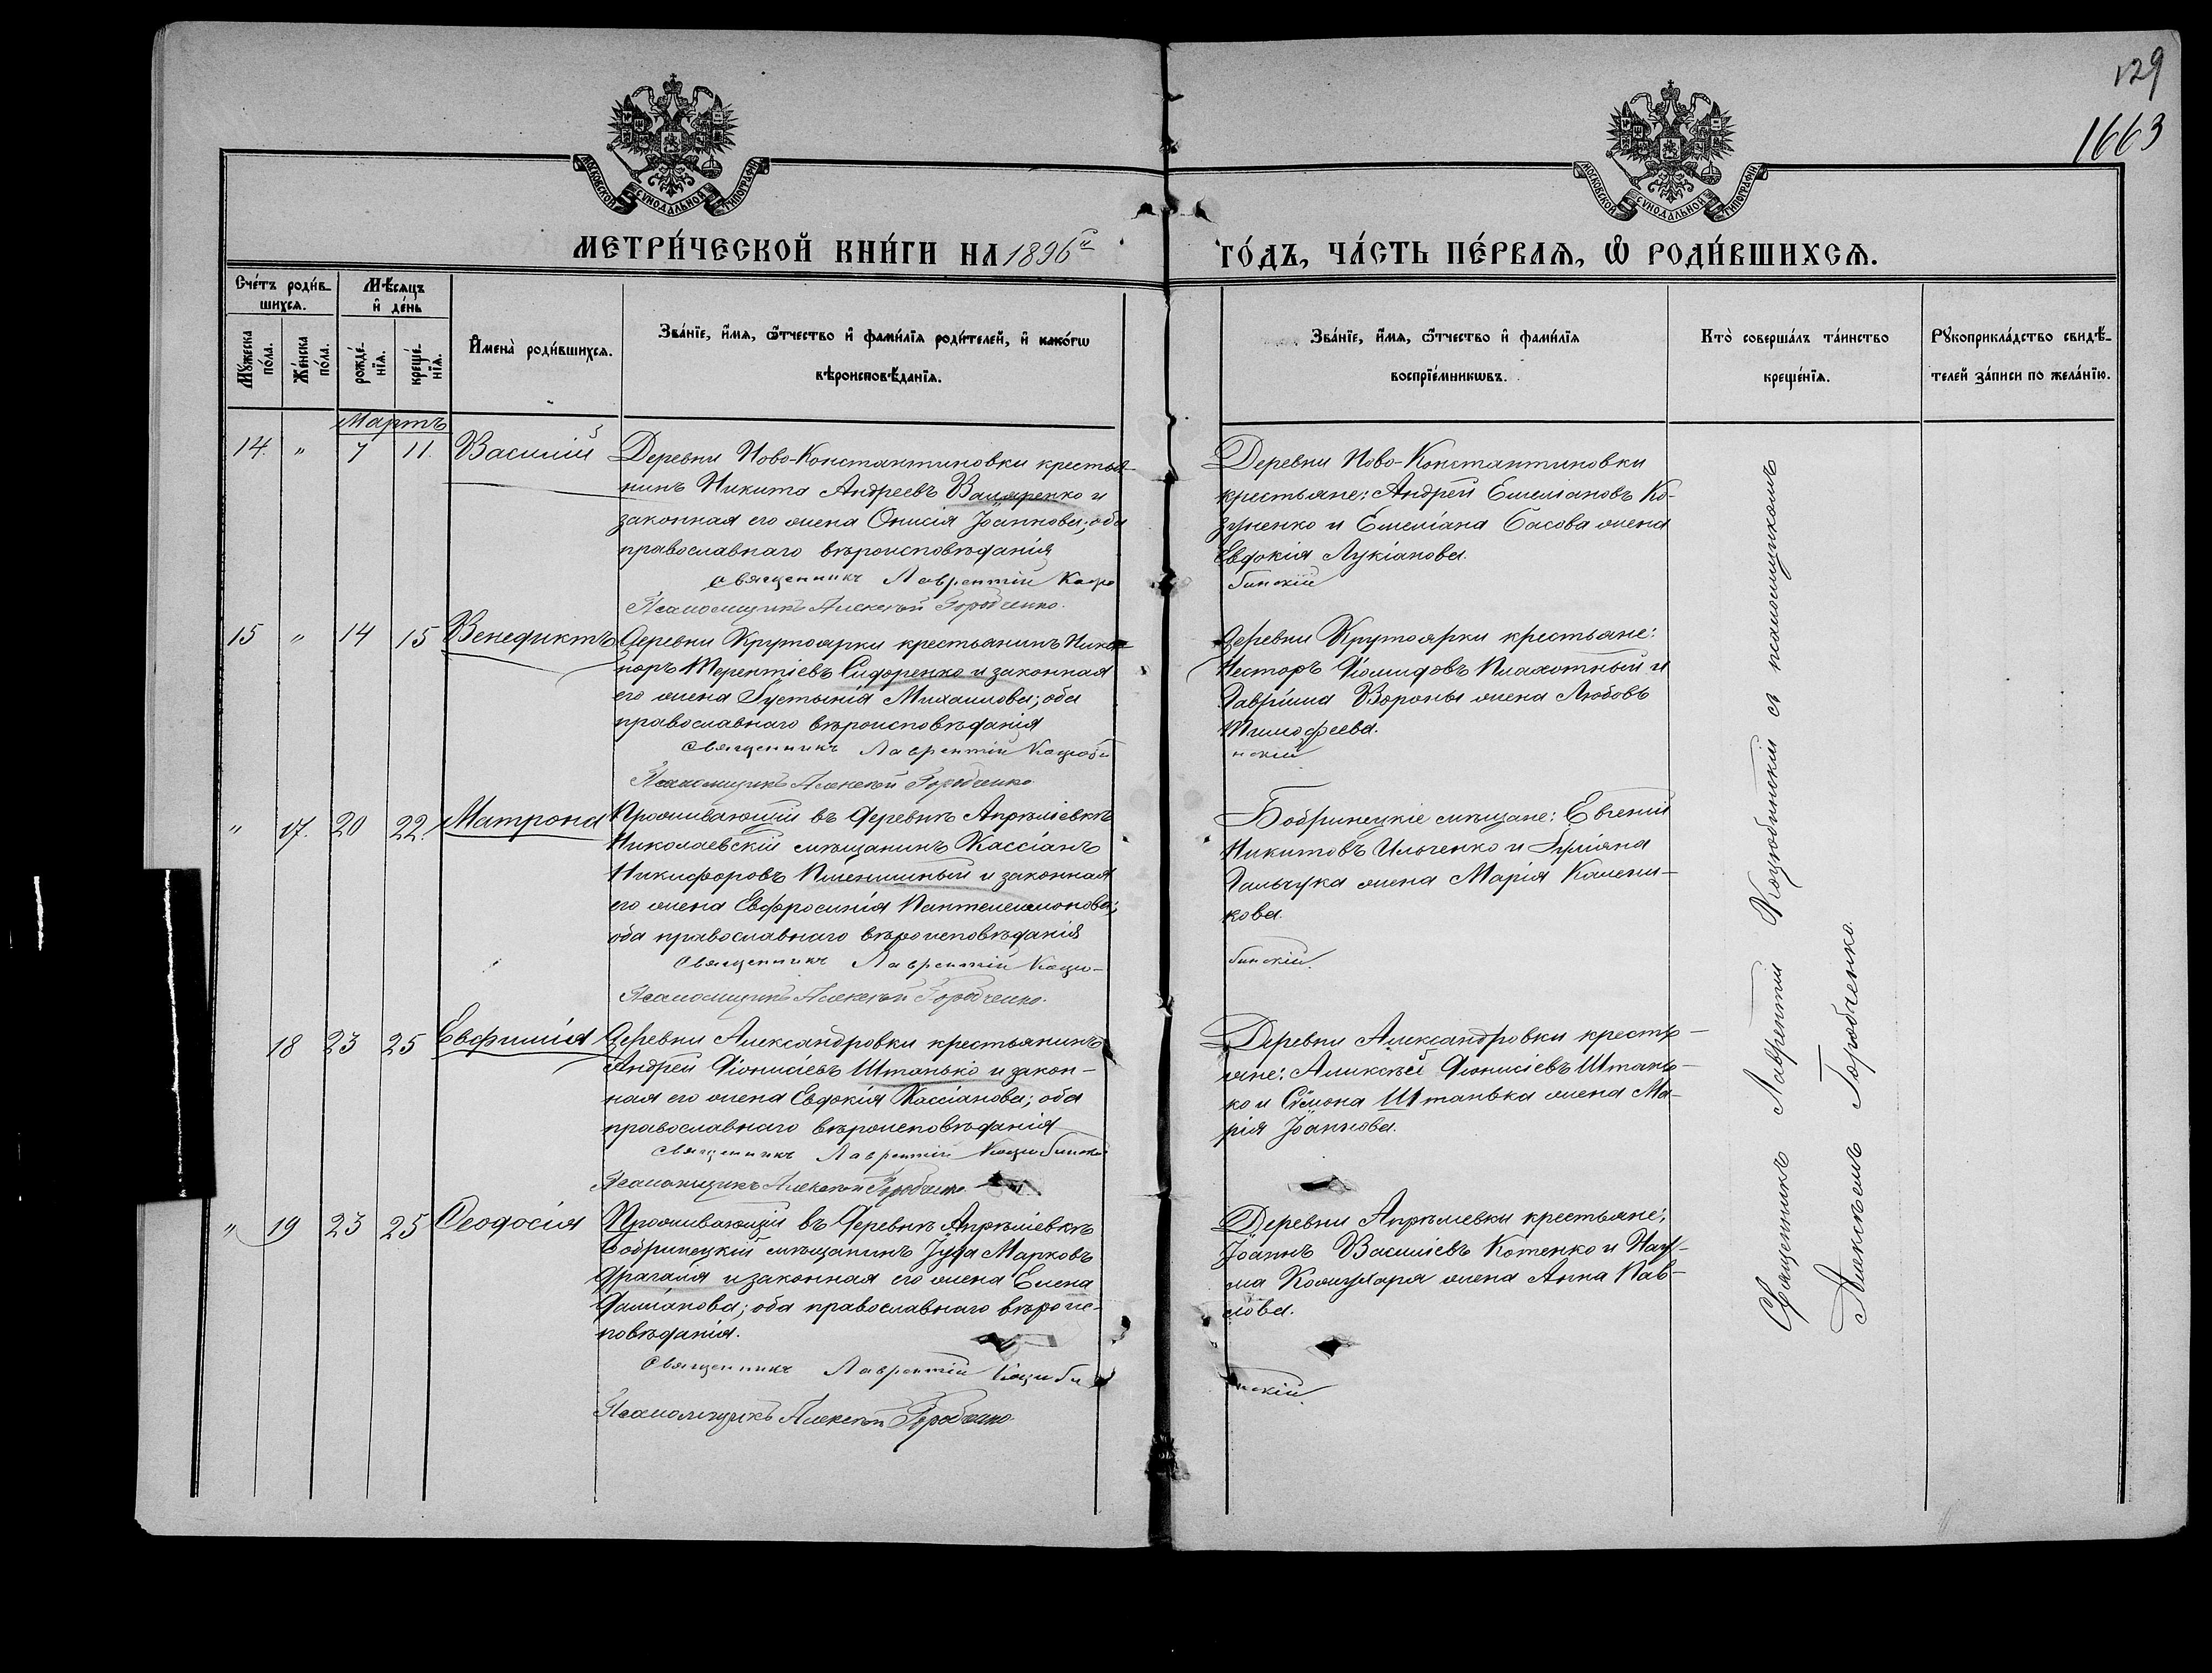 129
1663
МОСКОВСКОЙ СѴНОДАЛЬНОЙ ТИПОГРАФІИ
МОСКОВСКОЙ СѴНОДАЛЬНОЙ ТИПОГРАФІИ
МЕТРИ́ЧЕСКОЙ КНИ́ГИ НА 1896й ГО́ДЪ, ЧА́СТЬ ПЕ́РВАѦ, Ѡ РОДИ́ВШИХСѦ.
Сче́тъ роди́в-
шихсѧ.
Мѣ́сѧцъ
и де́нь
Мꙋжеска по́ла.
Же́нска по́ла.
рожде́-
нїѧ.
креще́-
нїѧ.
И҆мена̀ роди́вшихсѧ.
Зва́нїе, и҆́мѧ, ѻ҆́тчество и҆ фами́лїѧ роди́телей, и҆ како́гѡ
вѣроисповѣ́данїѧ.
Зва́нїе, и҆́мѧ, ѻ҆́тчество и҆ фами́лїѧ
воспрїе́мникѡвъ.
Кто̀ соверша́лъ та́инство
креще́нїѧ.
Рꙋкоприкла́дство свидѣ́-
телей за́писи по жела́нїю.
Мартъ
14. " 7 11. Василій
Деревни Ново-Константиновки крестья-
нинъ Никита Андреевъ и
законная его жена Онисія Іоаннова; оба
православнаго вѣроисповѣданія
Священникъ Лаврентій Коцю
бинскій
Псаломщикъ Алексѣй Горобченко.
Деревни Ново-Константиновки
крестьяне: Андрей Емеліановъ Ко-
зуненко и Емеліана Басова жена
Евдокія Лукіанова.
15 " 14 15 Венедиктъ
Деревни Крутоярки крестьянинъ Ника-
норъ Терентіевъ Сидоренко и законная
его жена Густынія Михаилова; оба
православнаго вѣроисповѣданія
Священникъ Лаврентій Коцюби
нскій
Псаломщикъ Алексѣй Горобченко
Деревни Крутоярки крестьяне:
Несторъ Діомидовъ Плахотный и
Гавріила Вороны жена Любовь
Тимофеева.
" 17. 20 22. Матрона
Проживающій въ деревнѣ Апрѣліевкѣ
Николаевскій мѣщанинъ Кассіанъ
Никифоровъ Пшенишный и законная
его жена Евфросинія Пантелеимонова;
оба православнаго вѣроисповѣданія
Священникъ Лаврентій Коцю-
бинскій.
Псаломщикъ Алексѣй Горобченко.
Бобринецкіе мѣщане: Евгеній
Никитовъ Ильченко и
Гальчука жена Марія Калени-
кова.
18 23 25 Евфимія
Деревни Александровки крестьянинъ
Андрей Діонисіевъ Штанько и закон-
ная его жена Евдокія Кассіанова; оба
православнаго вѣроисповѣданія
Священникъ Лаврентій Коцюбинскі
Псаломщикъ Алексѣй Горобченко
Деревни Александровки кресть-
яне: Алексѣй Діонисіевъ Штань-
ко и Сѵмона Штанька жена Ма-
рія Іоаннова.
" 19 23 25 Ѳеодосія
Проживающій въ деревнѣ Апрѣліевкѣ
Бобринецкій мѣщанинъ Іуда Марковъ
Драгаля и законная его жена Елена
Даміанова; оба православнаго вѣроис-
повѣданія.
Священникъ Лаврентій Коцюби
нскій.
Псаломщикъ Алексѣй Горобченко.
Деревни Апрѣлевки крестьяне:
Іоаннъ Василіевъ Котенко и Нау-
ма жена Анна Пав-
лова.
Священникъ Лаврентій Коцюбинскій съ псаломщикомъ
Алексѣемъ Горобченко.